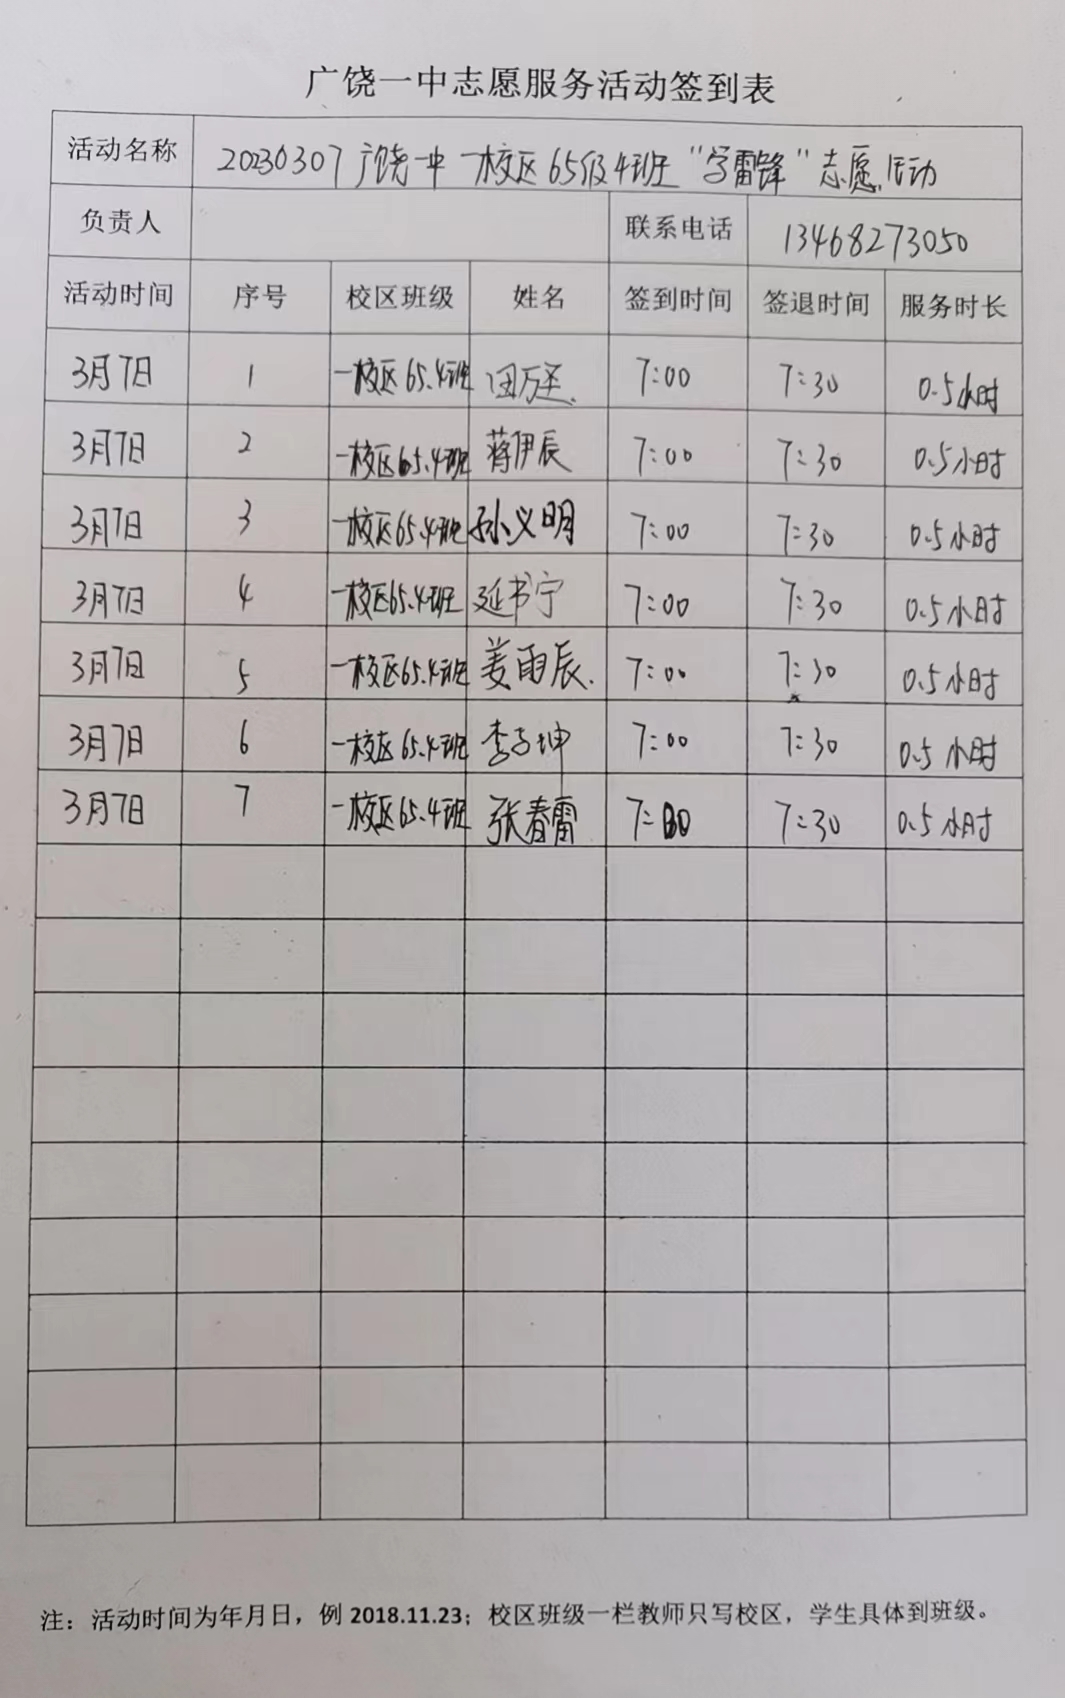 广饶一中志愿服务活动签到表
活动名称 20230307广饶一中一校区65级4班"学雷锋"志愿活动
负责人 联系电话 13468273050
活动时间 序号 校区班级 姓名 签到时间 签退时间 服务时长
3月7日 1 一校区65.4班 7:00 7:30 0.5小时
3月7日 2 一校区65.4班 蒋伊辰 7:00 7:30 0.5小时
3月7日 3 一校区65.4班 孙义明 7:00 7:30 0.5小时
3月7日 4 一校区65.4班 延书宁 7:00 7:30 0.5小时
3月7日 5 一校区65.4班 姜雨辰. 7:00 7:30 0.5小时
3月7日 6 一校区65.4班 李子坤 7:00 7:30 0.5小时
3月7日 7 一校区65.4班 张春雷 7:00 7:30 0.5小时
注：活动时间为年月日，例 2018.11.23；校区班级一栏教师只写校区，学生具体到班级。